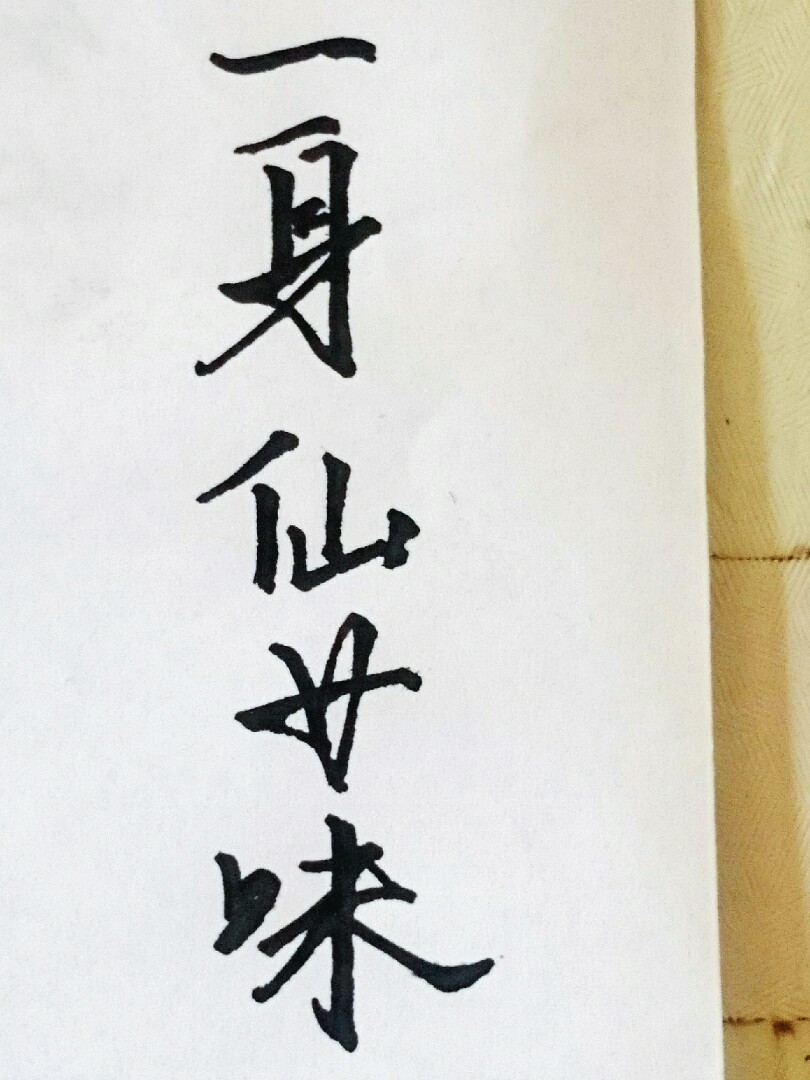 一身仙女味